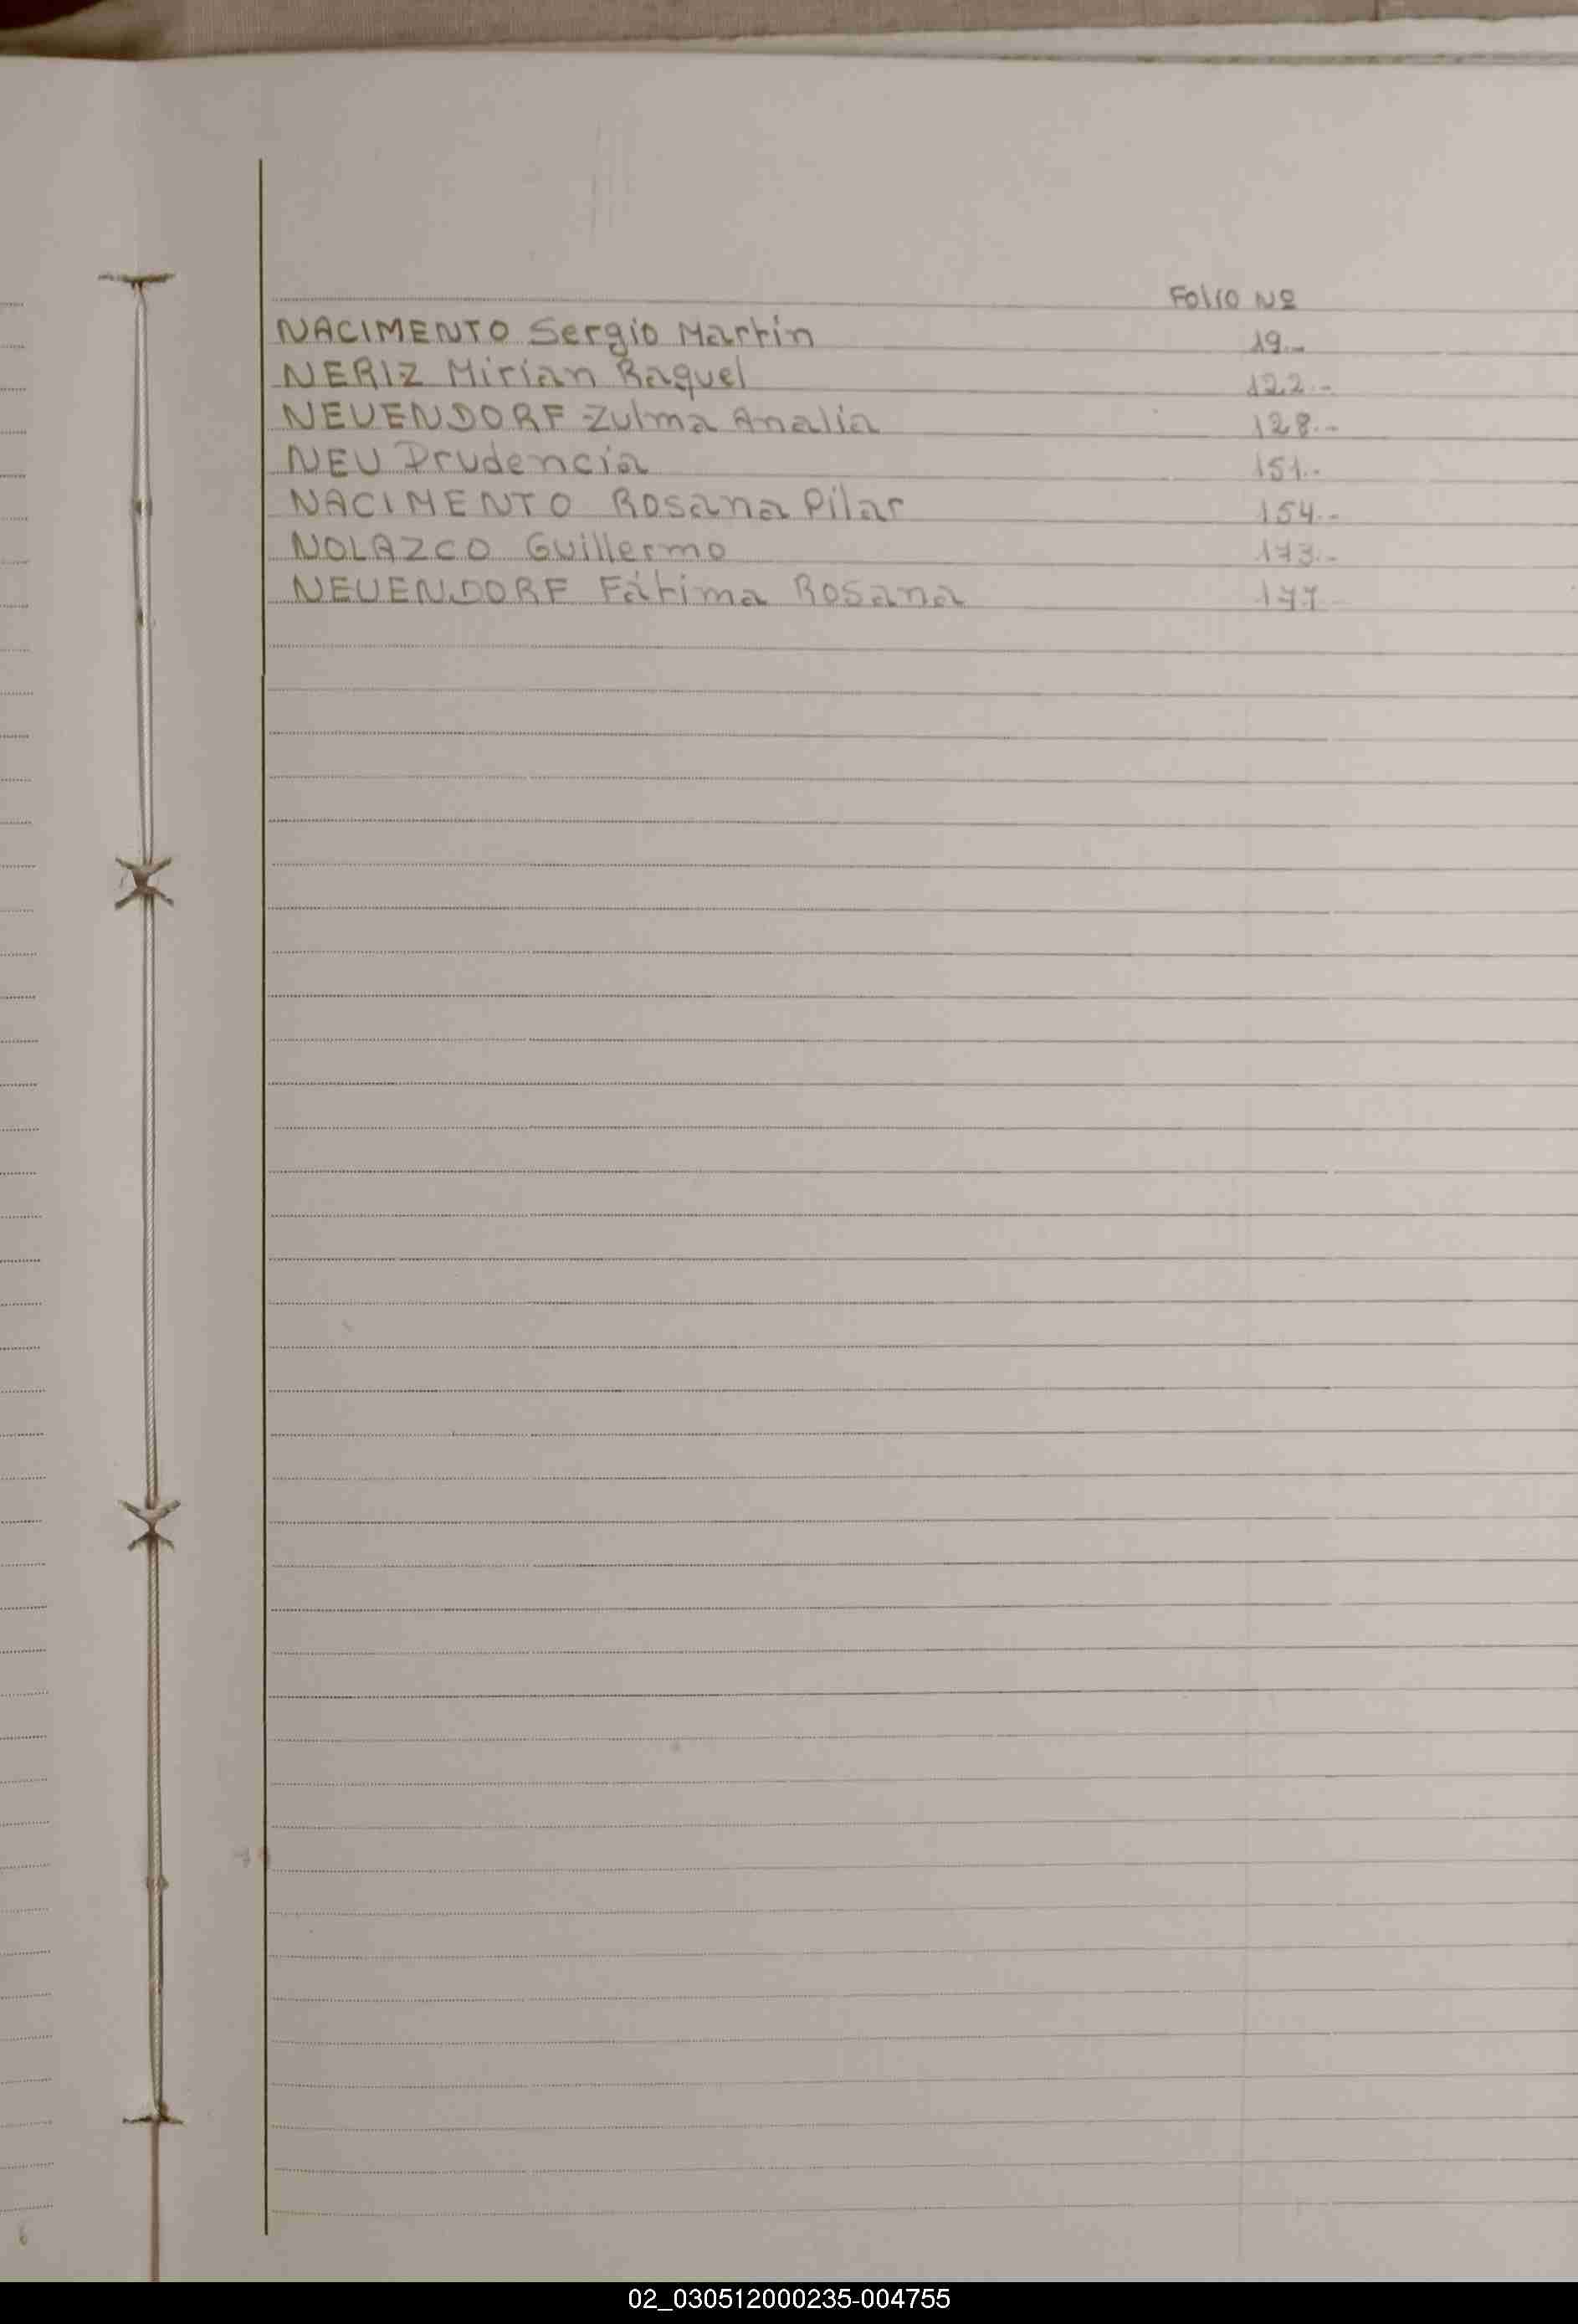 Folio Nº
NACIMENTO Sergio Martín 19.-
NERIZ Mirian Raquel 122.-
NEUENDORF Zulma Analía 128.-
NEU Prudencia 151.-
NACIMENTO Rosana Pilar 154.-
NOLAZCO Guillermo 173.-
NEUENDORF Fátima Rosana 177-
02_030512000235-004755